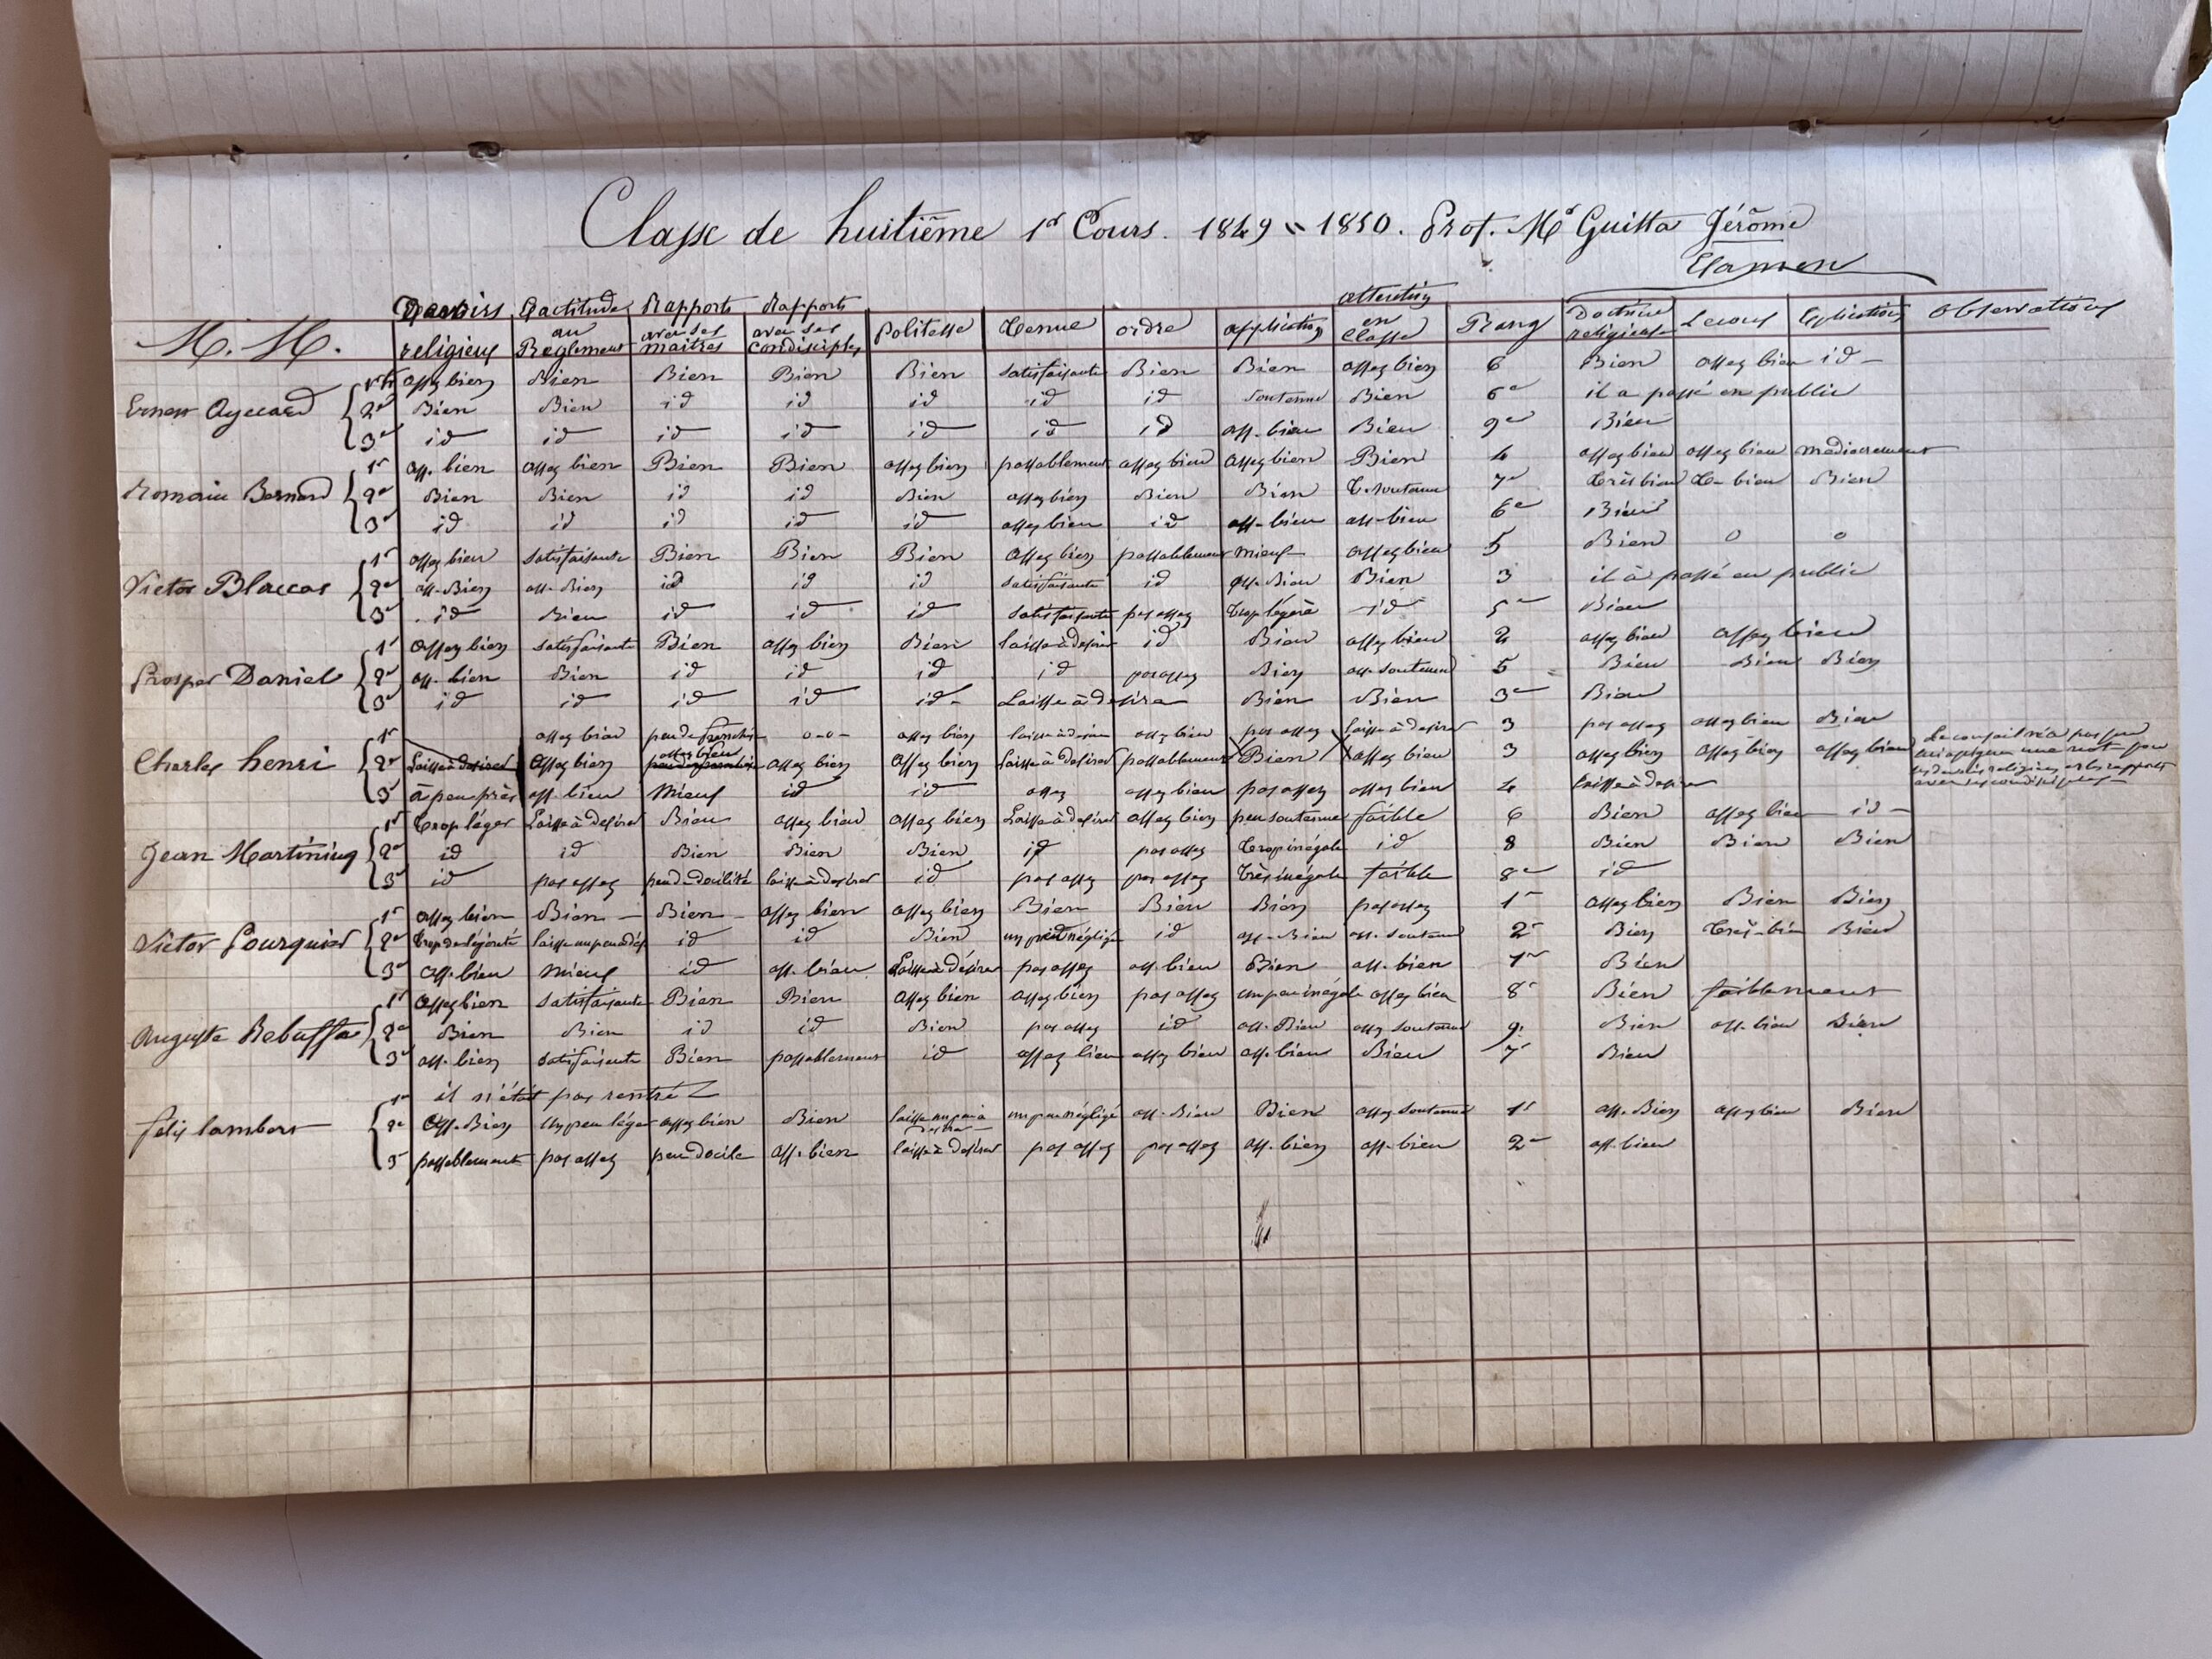 Classe de huitième 1er Cours. 1849 - 1850. Prof. Mr Guitta Jérôme
Examen
M. M. Devoirs religieux Exactitude au Règlement Rapports avec ses maitres Rapports avec ses condisciples Politesse Tenue ordre application attention en classe Rang Doctrine religieuse Lecons Explications observations
Ernest Ayccard 1er assez bien Bien Bien Bien Bien satisfaisante Bien Bien assez bien 6 Bien assez bien id
2e Bien Bien id id id id id soutenue Bien 6e il a passé en public
3e id id id id id id id ass. bien Bien 9e Bien
Romain Bernard 1er ass. bien assez bien Bien Bien assez bien passablement assez bien assez bien Bien 4 assez bien assez bien médiocrement
2e Bien Bien id id Bien assez bien Bien Bien T. soutenue 7e Très bien T- bien Bien
3e id id id id id assez bien id ass- bien ass- bien 6e Bien
Victor Blaccas 1er assez bien satisfaisante Bien Bien Bien assez bien passablement mieux assez bien 5 Bien 0 0
2e ass. Bien ass. Bien id id id satisfaisante id ass. Bien Bien 3 il à passé en public
3e id Bien id id id satisfaisante pas assez trop légère id 5e Bien
Prosper Daniel 1er assez bien satisfaisante Bien assez bien Bien laisse à desirer id Bien assez bien 2 assez bien assez bien
2e ass. bien Bien id id id id pas assez Bien ass. soutenue 5 Bien Bien Bien
3e id id id id id Laisse à desirer Bien Bien 3e Bien
Charles henri 1er assez bien peu de franchise 0-0- assez bien laisse à desirer assez bien pas assez laisse à desirer 3 pas assez assez bien Bien
2e Laisse à desirer assez bien assez bien assez bien assez bien Laisse à desirer passablement Bien assez bien 3 assez bien assez bien assez bien
Le conseil n'a pas pu
une note pour
les devoirs religieux et les rapports
avec ses condisciples
3e à peu près ass. bien mieux id id assez assez bien pas assez assez bien 4 laisse à desirer
Jean Martining 1er trop léger Laisse à desirer Bien assez bien assez bien Laisse à desirer assez bien peu soutenue faible 6 Bien assez bien id
2e id id Bien Bien Bien id pas assez trop inégale id 8 Bien Bien Bien
3e id pas assez peu de docilité laisse à desirer id pas assez pas assez très inégale faible 8e id
Victor Fourquier 1er assez bien Bien Bien assez bien assez bien Bien Bien Bien pas assez 1er assez bien Bien Bien
2e trop de légèreté laisse un peu à dés id id Bien un peu négligée id ass. Bien ass. soutenue 2e Bien très-bien Bien
3e ass. bien mieux id ass. bien Laisse à désirer pas assez ass. bien Bien ass. bien 1er Bien
Auguste Rebuffat 1er assez bien satisfaisante Bien Bien assez bien assez bien pas assez un peu inégale assez bien 8e Bien faiblement
2e Bien Bien id id Bien pas assez id ass. Bien assez soutenue 9e Bien ass. bien Bien
3e ass. bien satisfaisante Bien passablement id assez bien assez bien ass. bien Bien 7e Bien
felix lambert 1er il n'était pas rentré
2e ass. Bien un peu léger assez bien Bien laisse un peu à desirer un peu négligé ass. Bien Bien assez soutenue 1er ass. Bien assez bien Bien
3e passablement pas assez peu docile ass. bien laisse à desirer pas assez pas assez ass. bien ass. bien 2e ass. bien